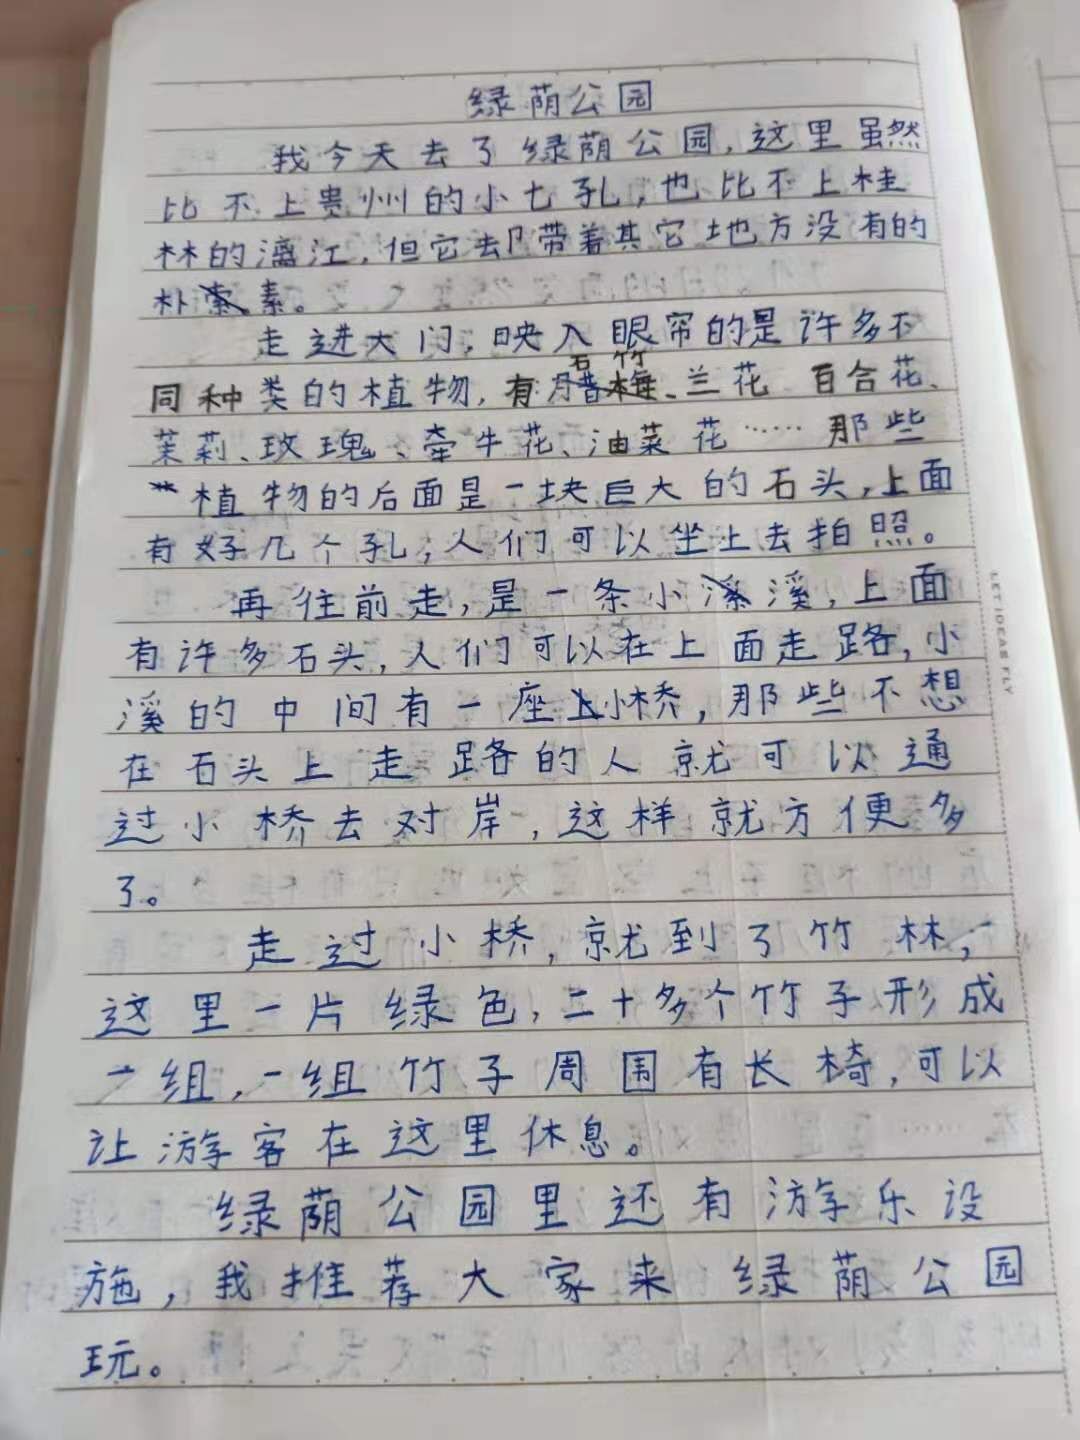 绿荫公园
我今天去了绿荫公园,这里虽然
比不上贵州的小七孔,也比不上桂
林的漓江,但它却带着其它地方没有的
朴素。
走进大门,映入眼帘的是许多不
石竹
同种类的植物,有腊梅、兰花 百合花、
茉莉、玫瑰、牵牛花、油菜花…… 那些
植物的后面是一块巨大的石头,上面
有好几个孔,人们可以坐上去拍照。
再往前走,是一条小溪,上面
有许多石头,人们可以在上面走路,小
溪的中间有一座小桥,那些不想
在石头上走路的人就可以通
过小桥去对岸,这样就方便多
了。
走过小桥,就到了竹林,
这里一片绿色,二十多个竹子形成
一组,一组竹子周围有长椅,可以
让游客在这里休息。
绿荫公园里还有游乐设
施,我推荐大家来绿荫公园
玩。
LET IDEAS FLY